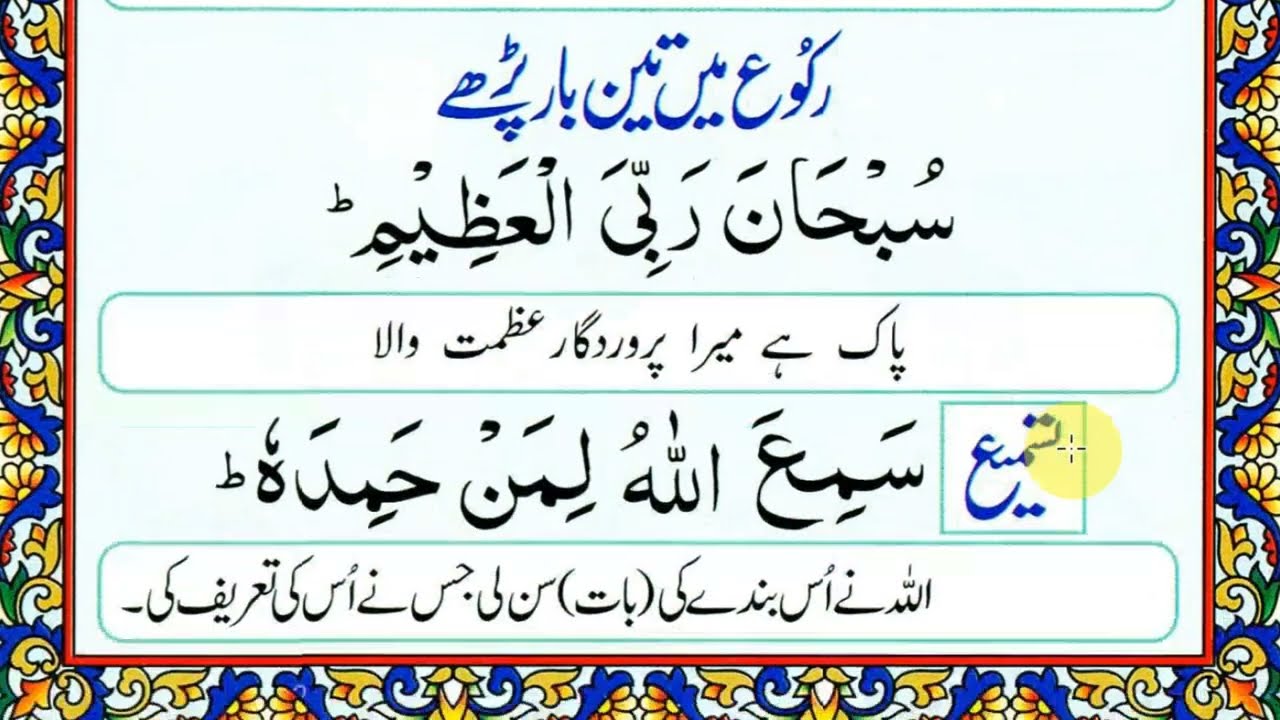 رکُوع میں تین بار پڑھے
سُبْحَانَ رَبِّیَ الْعَظِیْمِ ؕ
پاک ہے میرا پروردگار عظمت والا
تسمیع
سَمِعَ اللّٰهُ لِمَنْ حَمِدَهٗ ؕ
اللہ نے اُس بندے کی (بات) سن لی جس نے اُس کی تعریف کی۔